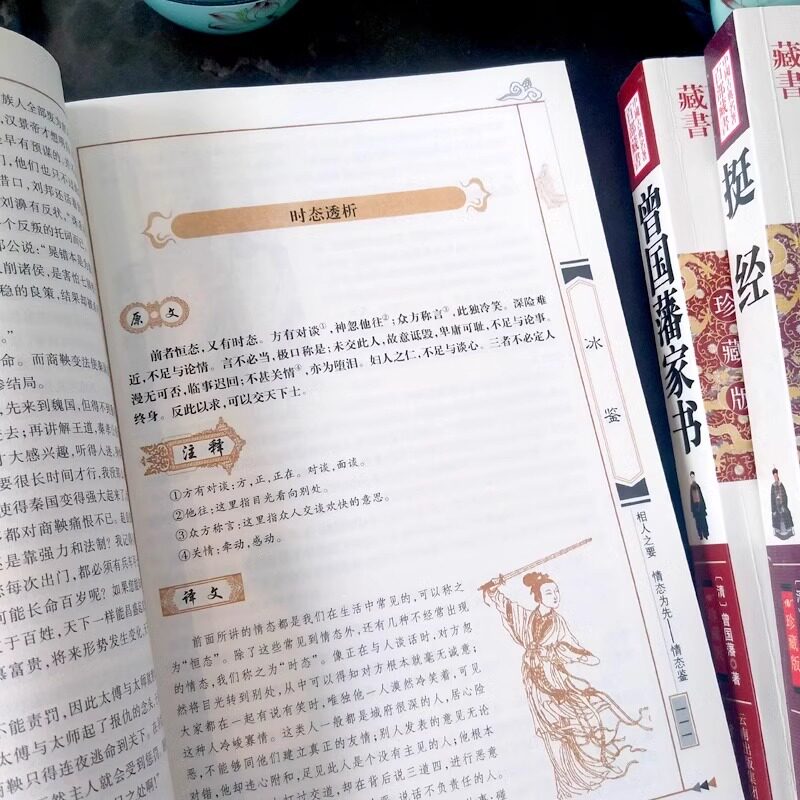 族人全部
汉景帝才想
早有预谋的
们,他们也只不过
借口,刘邦还活
刘濞有反状,
个反叛的托词
公说:“晁错本是
人削诸侯,是害怕
稳的良策,结果却
命。而商鞅变法使
惨结局。
先来到魏国,但得不到
去;再讲解王道,秦孝公
才大感兴趣,听得入迷
要很长时间才行,我没
使得秦国变得强大起来了
都对商鞅痛恨不已。
是靠强力和法制?我
你每次出门,都必须有兵
可能长命百岁呢?如果您
于百姓,天下一样能昌盛
富贵,将来形势发生变化
不能责罚,因此太傅与太师
太傅与太师起了报仇的念头
鞅只得连夜逃命到关下。
然主人就会受到惩罚
之处啊!”
时态透析
原文
前者恒态,又有时态。方有对谈①,神忽他往②;众方称言③,此独冷笑。深险难
近,不足与论情。言不必当,极口称是;未交此人,故意诋毁,卑庸可耻,不足与论事。
漫无可否,临事迟回;不甚关情④,亦为堕泪。妇人之仁,不足与谈心。三者不必定人
终身。反此以求,可以交天下士。
注释
①方有对谈:方,正,正在。对谈,面谈。
②他往:这里指目光看向别处。
③众方称言:这里指众人交谈欢快的意思。
④关情:牵动,感动。
译文
前面所讲的情态都是我们在生活中常见的,可以称之
为“恒态”。除了这些常见到情态外,还有几种不经常出现
的情态,我们称之为“时态”。像正在与人谈话时,对方忽
然将目光转到别处,从中可以得知对方根本就毫无诚意;
大家都在一起有说有笑时,唯独他一人漠然冷笑着,可见
这种人冷峻寡情。这类人一般都是城府很深的人,居心险
恶,不能够同他们建立真正的友情;别人发表的意见无论
对错,他却违心附和,足见此人是个没有主见的人;他根本
打过交道,却在背后说三道四,进行恶意
说话不负责任的人。
冰鉴
相人之要 情态为先——情态鉴
一一一
藏書
曾国藩家书
珍藏版
〔清〕曾国藩◎著
云南出版集团
藏書
挺经
珍藏版